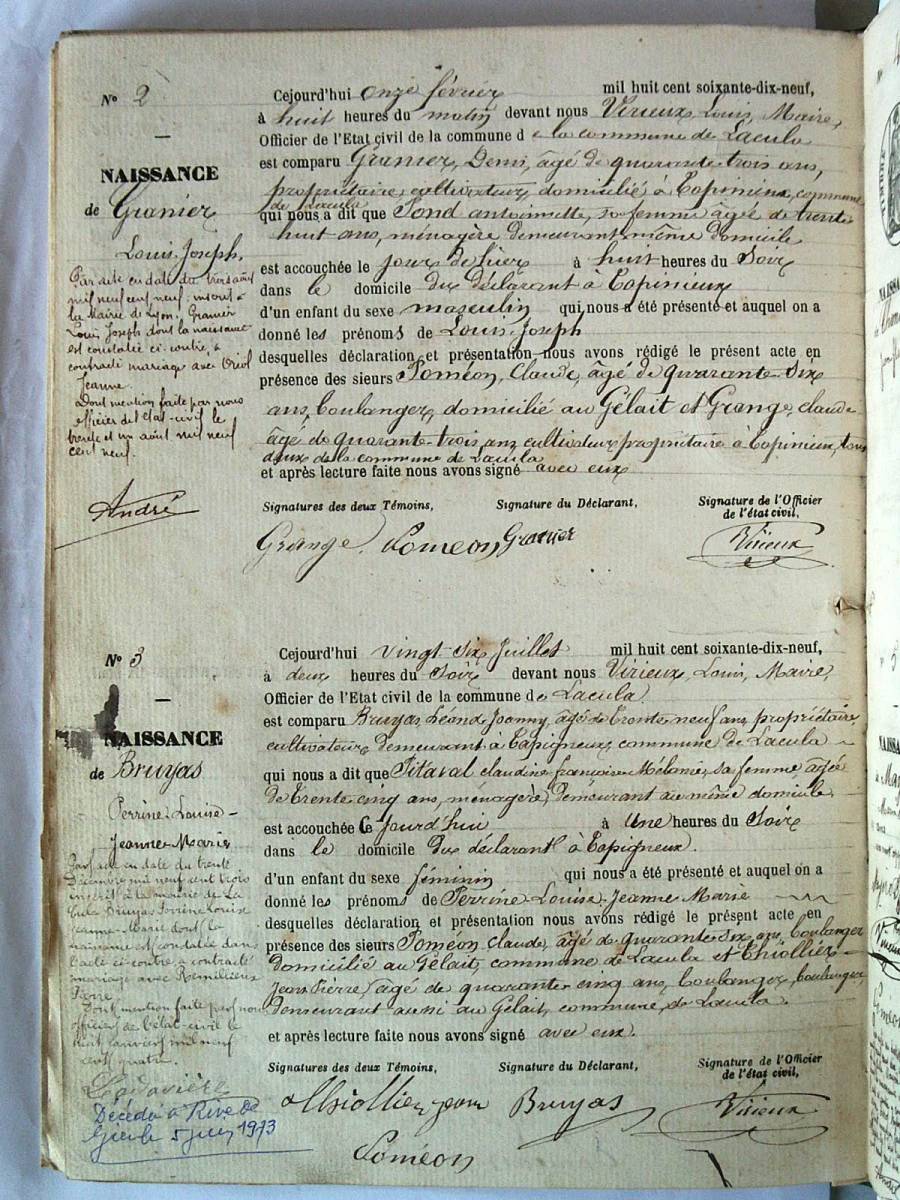 N° 2
NAISSANCE
de Granier
Louis Joseph,
Par acte en date du trois août
mil neuf cent neuf inscrit à
la Mairie de Lyon, Granier
Louis Joseph dont la naissance
est constatée ci-contre, a
contracté mariage avec Oriol
Jeanne.
Dont mention faite par nous
officier de l'état-civil le
trente et un août mil neuf
cent neuf.
André
Cejourd'hui onze février mil huit cent soixante-dix-neuf,
à huit heures du matin devant nous Virieux, Louis, Maire,
Officier de l'Etat civil de la commune de la commune de Lacula
est comparu Granier, Denis, âgé de quarante-trois ans,
propriétaire cultivateur, domicilié à Eopinieux, commune
de Lacula
qui nous a dit que Fond antoinette, sa femme âgée de trente
huit ans, ménagère demeurant même domicile
est accouchée le jour de hier à huit heures du Soir
dans le domicile du déclarant à Eopinieux
d'un enfant du sexe masculin qui nous a été présenté et auquel on a
donné les prénoms de Louis Joseph
desquelles déclaration et présentation nous avons rédigé le présent acte en
présence des sieurs Poméon, Claude, âgé de quarante-six
ans, boulanger, domicilié au Gélait et Grange, claude
âgé de quarante-trois, ans cultivateur propriétaire à Eopinieux, tous
deux de la commune de Lacula
et après lecture faite nous avons signé avec eux
Signatures des deux Témoins, Signature du Déclarant, Signature de l'Officier
de l'état civil,
Grange Poméon Granier Virieux
N° 3
NAISSANCE
de Bruyas
Perrine-Louise-
Jeanne-Marie
Par acte en date du trente
Décembre mil neuf cent trois
inscrit à la mairie de La
Cula Bruyas Perrine Louise
Jeanne-Marie dont la
naissance est constatée dans
l'acte ci-contre a contracté
mariage avec Remillieux
Pierre
Dont mention faite par nous
officier de l'état-civil le
huit janvier mil neuf
cent quatre.
Décédée à Rive de
Gier le 5 juin 1973
Cejourd'hui vingt six Juillet mil huit cent soixante-dix-neuf,
à deux heures du Soir devant nous Virieux, Louis, Maire,
Officier de l'Etat civil de la commune de Lacula
est comparu Bruyas, Léond Joanny, âgé de trente neuf ans, propriétaire
cultivateur, demeurant à Eapigneux, commune de Lacula
qui nous a dit que Pitaval claudine françoise Mélanie, sa femme âgée
de trente cinq ans, ménagère, demeurant au même domicile
est accouchée Ce jourd'hui à Une heures du Soir
dans le domicile du déclarant à Eapigneux.
d'un enfant du sexe féminin qui nous a été présenté et auquel on a
donné les prénoms de Perrine-Louise-Jeanne Marie
desquelles déclaration et présentation nous avons rédigé le présent acte en
présence des sieurs Poméon Claude, âgé de quarante six ans, boulanger
domicilié au Gélait, commune de Lacula et Thiollier
Jean Pierre, âgé de quarante cinq ans, boulanger, boulanger,
demeurant aussi au Gélait, commune, de Lacula.
et après lecture faite nous avons signé avec eux.
Signatures des deux Témoins, Signature du Déclarant, Signature de l'Officier
de l'état civil,
Thiollier Bruyas Virieux
Poméon